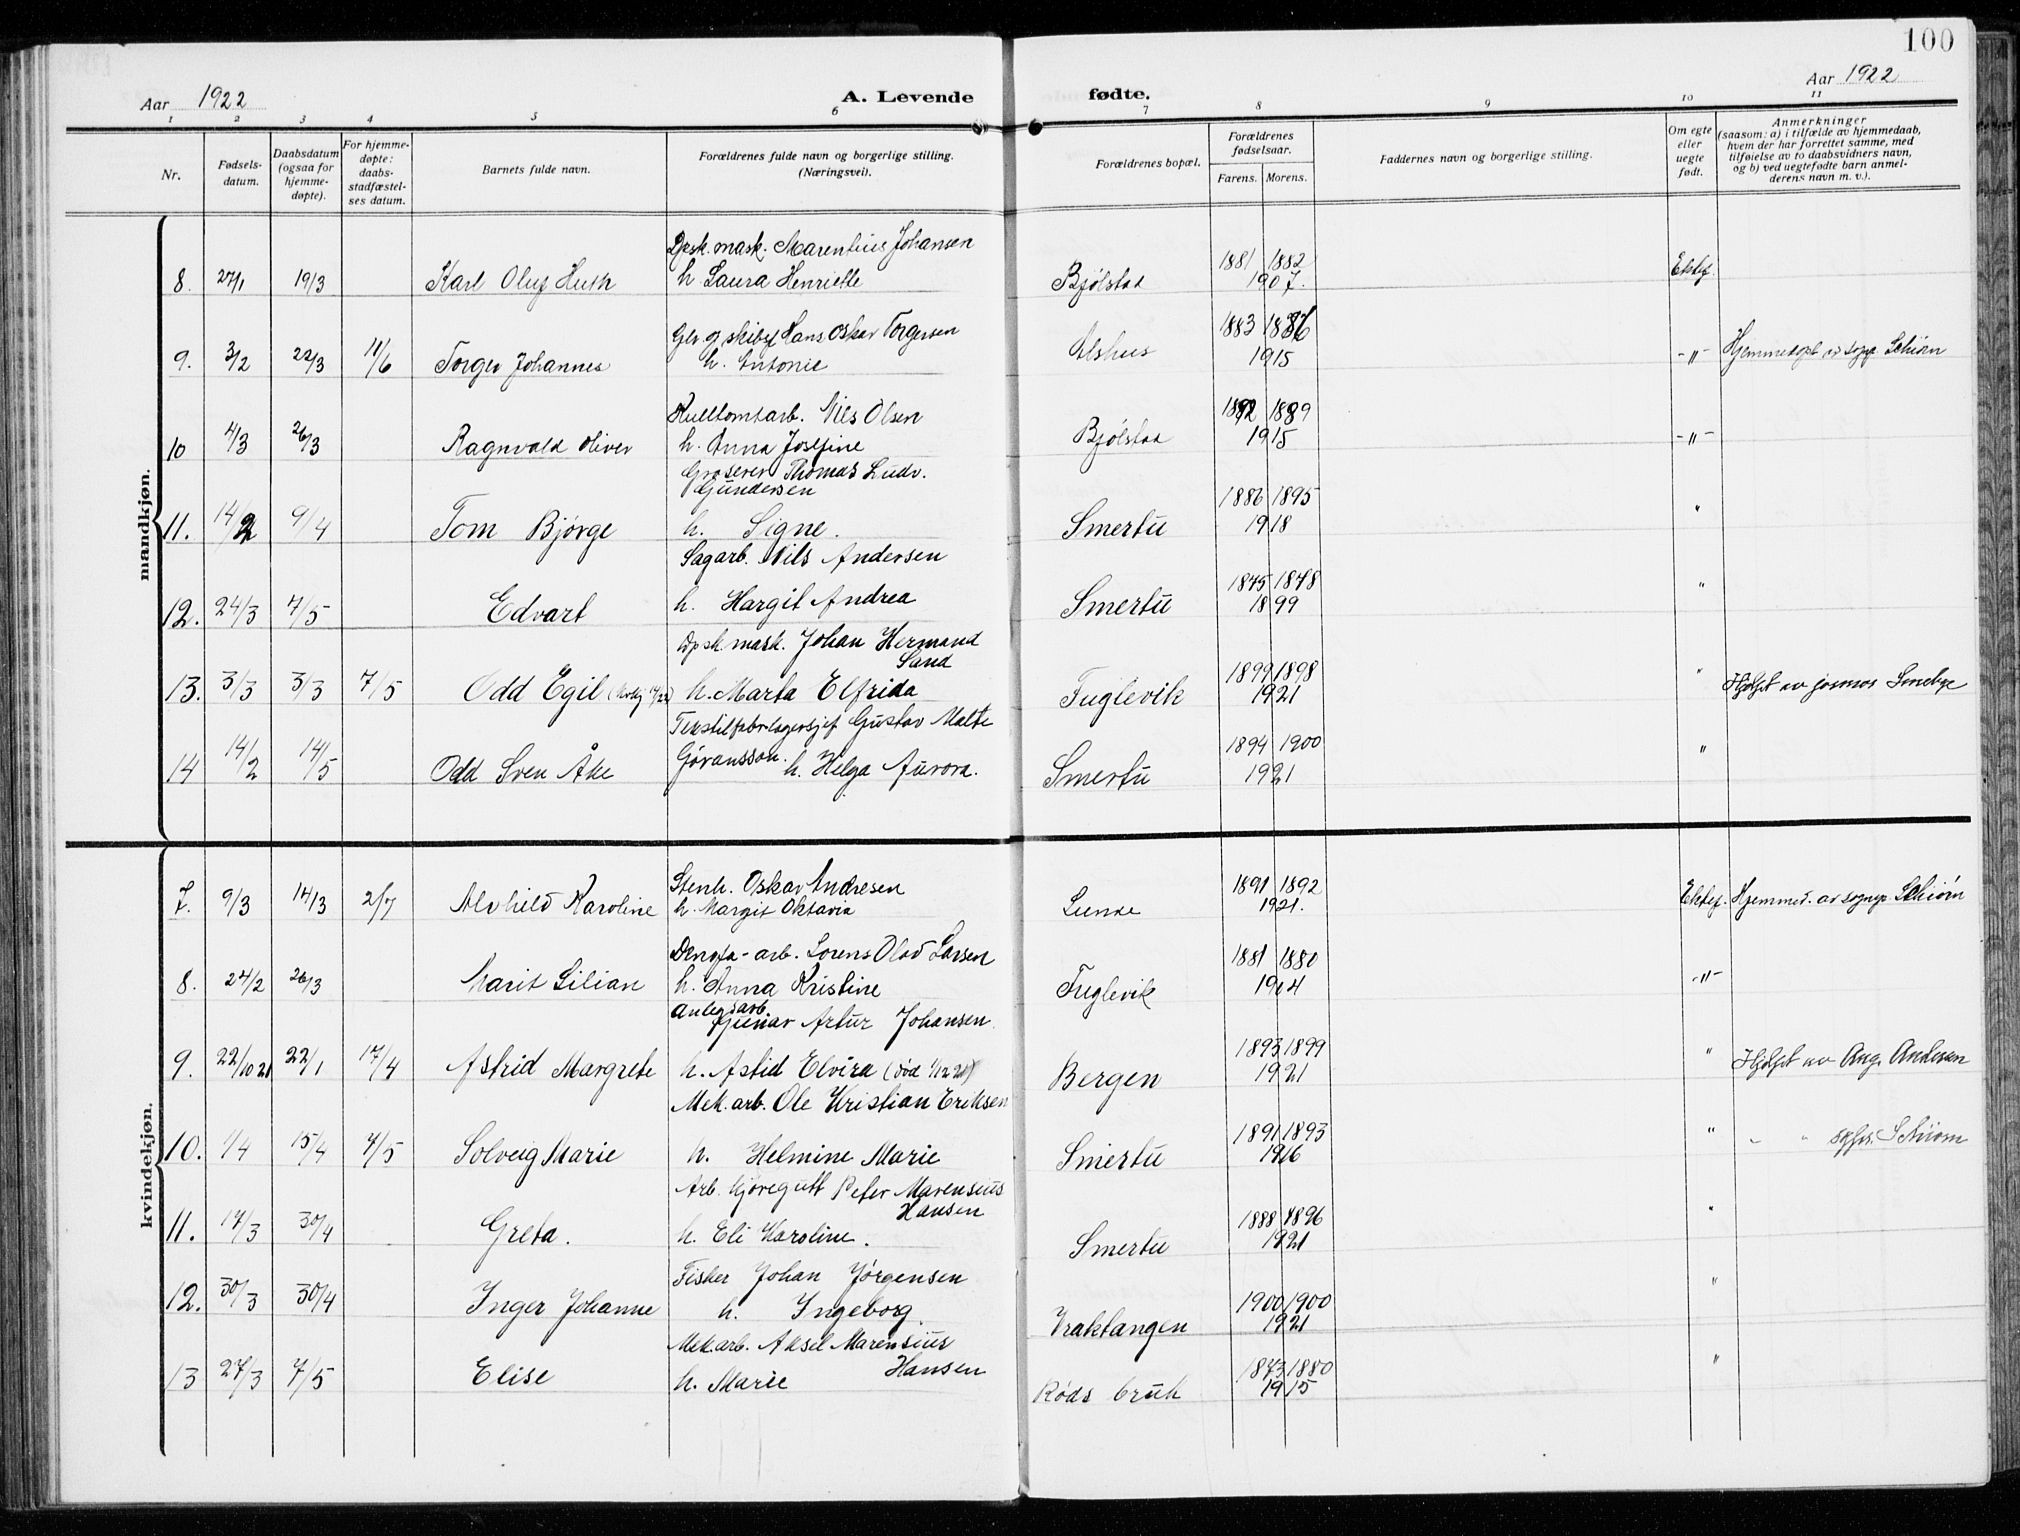 100
Aar 1922
A. Levende
fødte.
Aar 1922
1 2 3 4 5 6 7 8 9 10 11
Nr.
Fødsels-
datum.
Daabsdatum
(ogsaa for
hjemme-
døpte).
For hjemme-
døpte:
daabs-
stadfæstel-
ses datum.
Barnets fulde navn.
Forældrenes fulde navn og borgerlige stilling.
(Næringsvei).
Forældrenes bopæl.
Forældrenes
fødselsaar.
Farens. Morens.
Faddernes navn og borgerlige stilling.
Om egte
eller
uegte
født.
Anmerkninger
(saasom: a) i tilfælde av hjemmedaab,
hvem der har forrettet samme, med
tilføielse av to daabsvidners navn,
og b) ved uegtefødte barn anmel-
derens navn m. v.).
mandkjøn.
mask. Marentius Johansen
1881 1882
8. 27/1 19/3 Karl Oluf Huth h. Laura Henriette Bjølstad 1907. Ektef.
Hans Oskar Torgersen
1883
9. 3/2 22/3 11/6 Torger Johannes h. Antonie Alshus 1915 -"- Schiørn
Nils Olsen
1889
10 4/3 26/3 Ragnvald Oliver h. Anna Josefine Bjølstad 1915 -"-
Groserer Thomas Ludv.
Gundersen
1886 1895
11. 14/2 9/4 Tom Bjørge h. Signe. Smertu 1918 "
Sagarb. Nils Andersen
1875 1878
12. 24/3 7/5 Edvart h. Hargit Andrea Smertu 1899 "
mask. Johan Hermand
Sand
1899 1898
13. 3/3 3/3 7/5 Odd Egil h. Marta Elfrida Fuglevik 1921 " Smebye
Gustav Malte
1894 1900
14 14/2 14/5 Odd Sven Åke Gøransson. h. Helga Aurora. Smertu 1921 "
kvindekjøn.
Stenh. Oskar Andresen
1891 1892
7. 9/3 14/3 2/7 Alvhild Karoline h. Margit Oktavia Lunde 1921. Ektef. Hjemmed. av sognepr. Schiørn
arb. Lorens Olad Larsen
1881 1880
8. 24/2 26/3 Marit Lilian h. Anna Kristine Fuglevik 1904 -"-
Anlegsarb.
Gunar Artur Johansen
1893 1899
9. 22/10 21 22/1 17/4 Astrid Margrete h. Astid Elvira Bergen 1921 " av Ang. Andersen
Mek. arb. Ole Kristian Eriksen
1891 1893
10. 1/4 15/4 7/5 Solveig Marie h. Helmine Marie Smertu 1916 " " " Schiørn
Arb. kjøregutt Peter Marensius
Hansen
1888 1896
11. 17/3 30/4 Greta. h. Eli Karoline. Smertu 1921 "
Fisker Johan Jørgensen
1900 1900
12. 30/3 30/4 Inger Johanne h. Ingeborg. Vraktangen 1921 "
Mek. arb. Aksel Marensius
Hansen
1873 1880
13 27/3 7/5 Elise h. Marie Røds bruk 1915 "